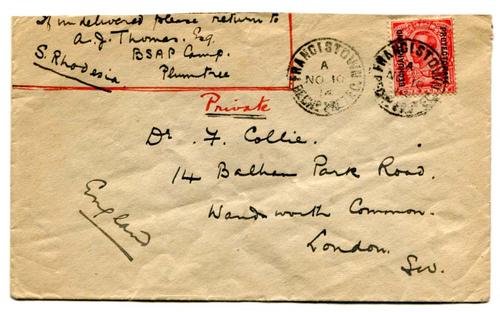 If undelivered please return to
A.J. Thomas. Esq
BSAP Camp.
Plumtree
S. Rhodesia
FRANCISTOWN
A
NO 10
14
BECH. PROT.
FRANCISTOWN
A
BECHUANALAND
PROTECTORATE
Private
Dr. F. Collie.
14 Balham Park Road.
Wandsworth Common.
London.
S.W.
England